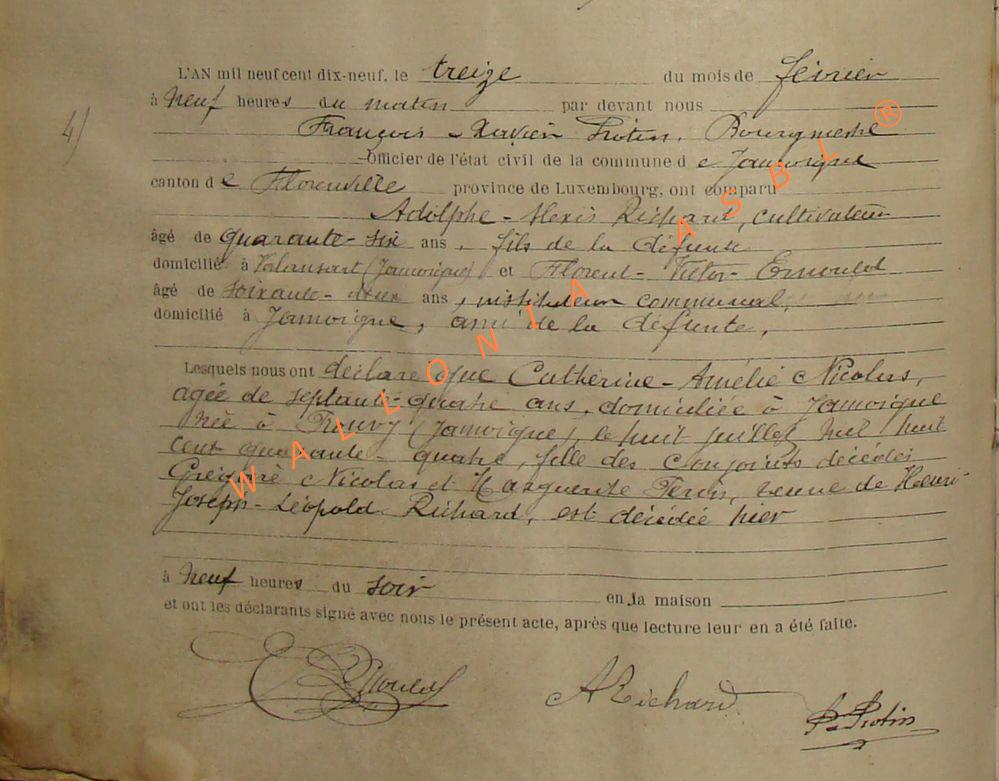 L'AN mil neuf cent dix-neuf, le treize du mois de février
à neuf heures du matin par devant nous
4)
François-Xavier Protin, Bourgmestre
Officier de l'état civil de la commune de Jamoigne
canton de Florenville province de Luxembourg, ont comparu
Adolphe-Alexis Richard, cultivateur
âgé de quarante-six ans, fils de la défunte
domicilié à Valansart (Jamoigne) et Florent-Victor-
âgé de soixante-deux ans, instituteur communal,
domicilié à Jamoigne, ami de la défunte,
Lesquels nous ont déclaré que Catherine-Amélie Nicolas,
agée de septante-quatre ans, domiciliée à Jamoigne
née à Prouvy (Jamoigne), le huit juillet mil huit
cent quarante-quatre, fille des conjoints décédés
Grégoire Nicolas et Marguerite veuve de Henri-
Joseph-Léopold Richard, est décédée hier
à neuf heures du soir en la maison
et ont les déclarants signé avec nous le présent acte, après que lecture leur en a été faite.
ARichard
Protin
WALLONIA ASBL ®